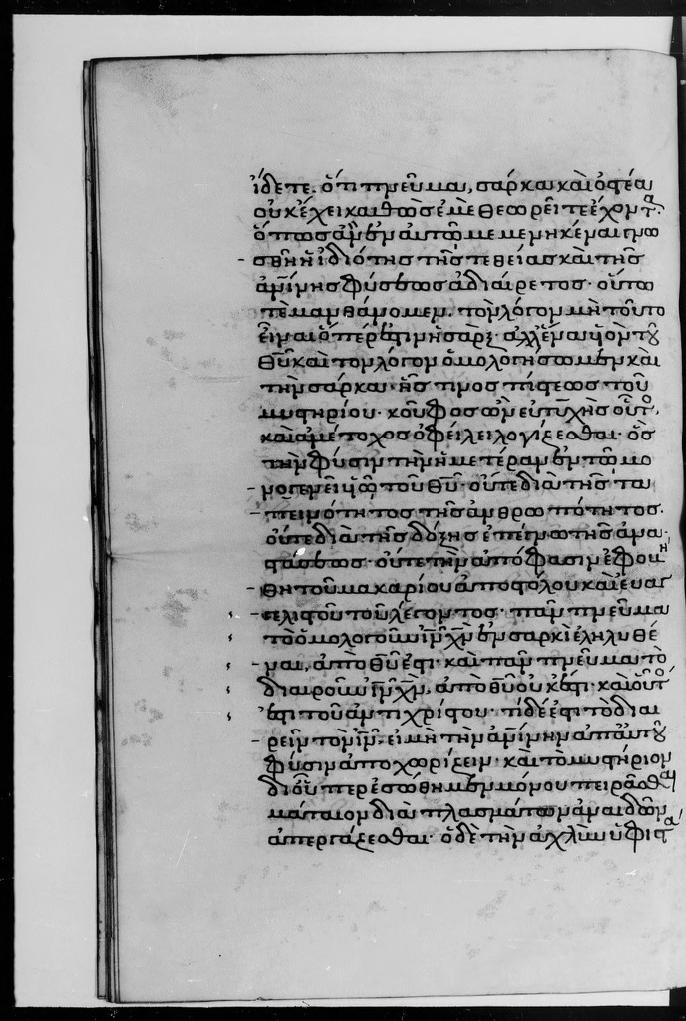 ἴδετε. ὅτι πνεῦμα, σάρκα καὶ ὀστέα
οὐκ ἔχει καθὼς ἐμὲ θεωρεῖτε ἔχοντα·
ὅπως ἂν ἐν αὐτῷ μεμενηκέναι γνω
σθῆ ἡ ἰδιότης τῆς τε θείας καὶ τῆς
ἀν̅ίνης φύσεως ἀδιαίρετος· οὕτω
τὲ μανθάνομεν. τὸν λόγον μὴ τοῦτο
εἶναι ὅπέρ ἐστιν ἡ σάρξ· ἀλλ' ἕνα υἱὸν τοῦ
θ̅υ̅ καὶ τὸν λόγον ὁμολογήσωμεν καὶ
τὴν σάρκα· ἧς τινος πίστεως τοῦ
μυστηρίου· κοῦφος ὢν εὐτυχὴς οὗτος,
καὶ ἀμέτοχος ὀφείλει λογίζεσθαι· ὃς
τὴν φύσιν τὴν ἡμετέραν ἐν τῶ μο
νογενεῖ υἱῶ τοῦ θ̅υ̅· οὔτε διὰ τῆς τα
πεινότητος τῆς ἀνθρωπότητος·
οὔτε διὰ τῆς δόξης ἐπέγνω τῆς ἀνα
στάσεως· οὔτε τὴν ἀπόφασιν ἐφοβή
θη τοῦ μακαρίου ἀποστόλου καὶ εὐαγ
γελιστοῦ τοῦ λέγοντος· πᾶν πνεῦμα
τὸ ὁμολογοῦν ι̅ν̅ χ̅ν̅ ἐν σαρκὶ ἐληλυθέ
ναι, ἀπὸ θ̅υ̅ ἐστι· καὶ πᾶν πνεῦμα τὸ
διαιροῦν ι̅ν̅ χ̅ν̅, ἀπὸ θ̅υ̅ οὐκ ἔστι· καὶ οὗτός
ἐστι τοῦ ἀντιχρίστου· τί δέ ἐστι τὸ διαι
ρεῖν τὸν ι̅ν̅. εἰ μὴ τὴν ἀν̅ίνην ἀπ' αὐτοῦ
φύσιν ἀποχωρίζειν· καὶ τὸ μυστήριον
δι' οὗπερ ἐσώθημεν μόνου πειρᾶσθαι
μάταιον διὰ πλασμάτων ἀναιδῶν
ἀπεργάζεσθαι· ὁ δὲ τὴν ἀχλὺν ὑφιστά